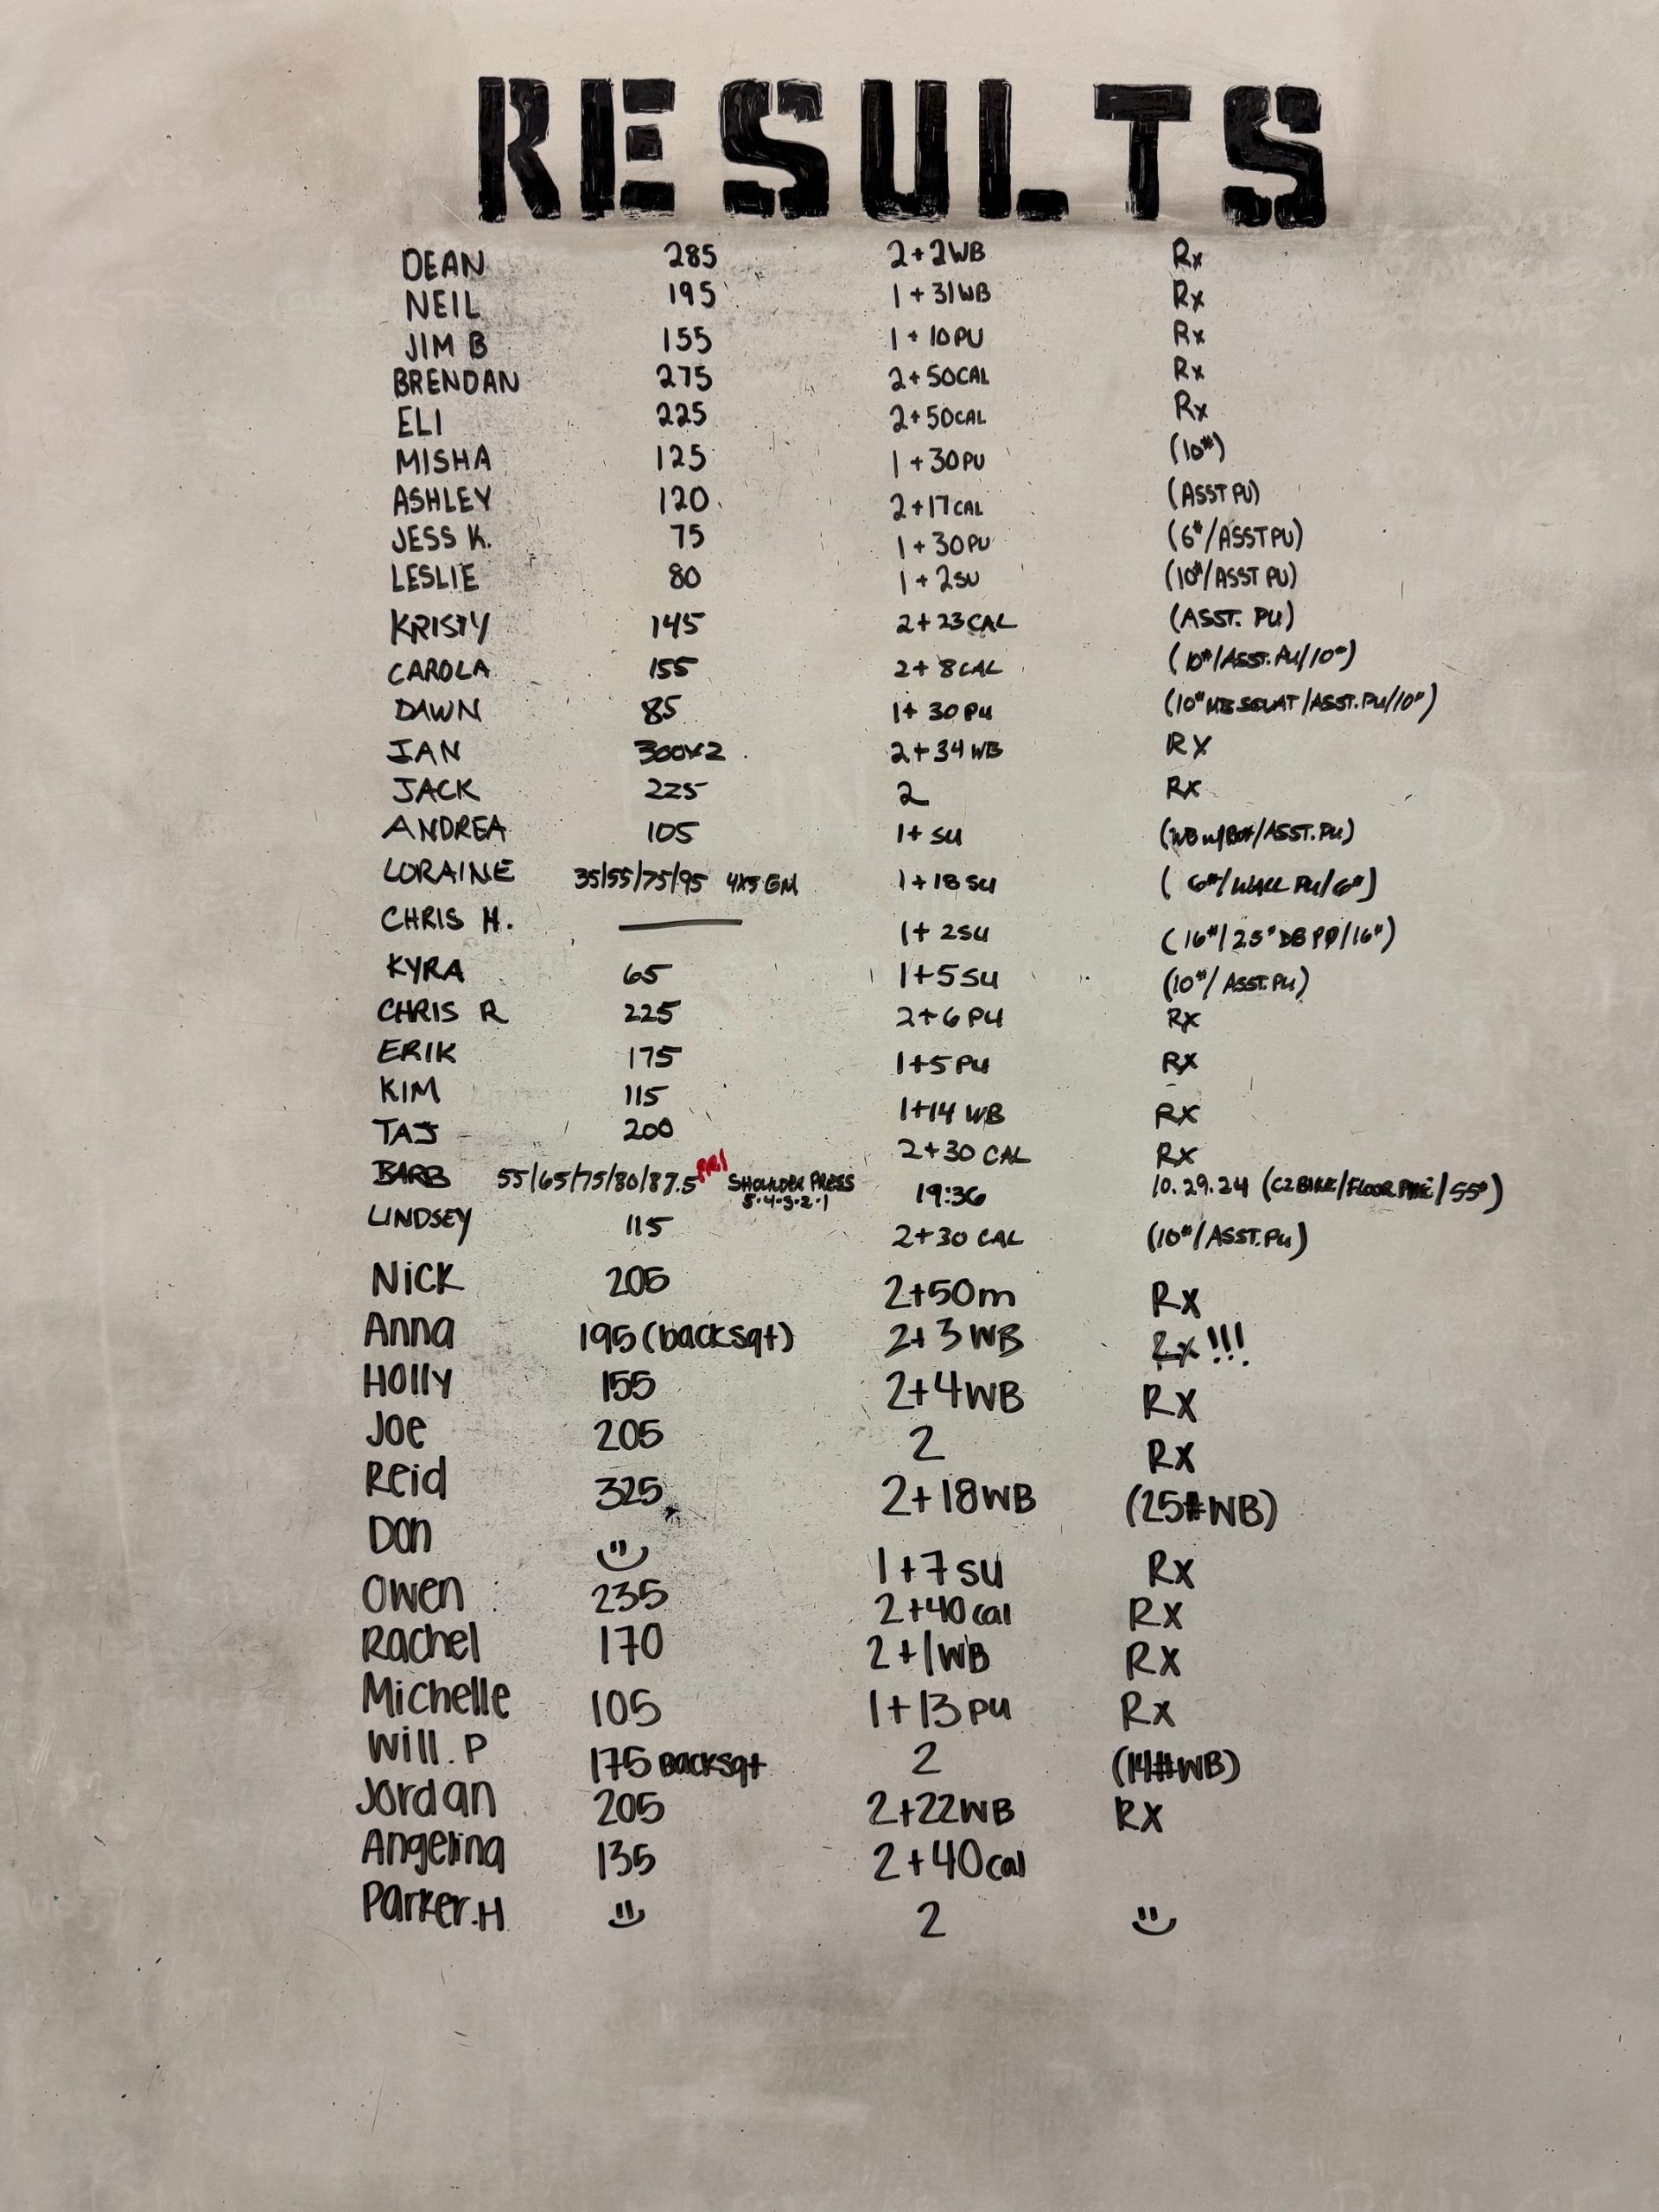 RESULTS
DEAN 285 2+2WB Rx
NEIL 195 1+31WB Rx
JIM B 155 1+10PU Rx
BRENDAN 275 2+50CAL Rx
ELI 225 2+50CAL Rx
MISHA 125 1+30PU (10#)
ASHLEY 120 2+17CAL (ASST PU)
JESS K. 75 1+30PU (6#/ASST PU)
LESLIE 80 1+2SU (10#/ASST PU)
KRISTY 145 2+23CAL (ASST. PU)
CAROLA 155 2+8CAL (10#/ASST.PU/10#)
DAWN 85 1+30PU (10# SQUAT/ASST.PU/10#)
IAN 300x2 2+34WB RX
JACK 225 2 RX
ANDREA 105 1+SU (WB w/BOX/ASST.PU)
LORAINE 35/55/75/95 4x5 GM 1+18SU (6#/WALL PU/6#)
CHRIS H. — 1+2SU (16#/25# DB PP/16#)
KYRA 65 1+5SU (10#/ASST.PU)
CHRIS R 225 2+6PU RX
ERIK 175 1+5PU RX
KIM 115 1+14WB RX
TAJ 200 2+30 CAL RX
BARB 55/65/75/80/87.5 PR! SHOULDER PRESS 5·4·3·2·1 19:36 10.29.24 (C2 BIKE/FLOOR /55#)
LINDSEY 115 2+30 CAL (10#/ASST.PU)
NiCK 205 2+50m Rx
Anna 195 (backsqt) 2+3WB Rx!!!
Holly 155 2+4WB RX
Joe 205 2 RX
Reid 325 2+18WB (25#WB)
Don 1+7SU RX
Owen 235 2+40cal RX
Rachel 170 2+1WB RX
Michelle 105 1+13PU RX
Will. P 175 Backsqt 2 (14#WB)
Jordan 205 2+22WB RX
Angelina 135 2+40cal
Parker.H 2